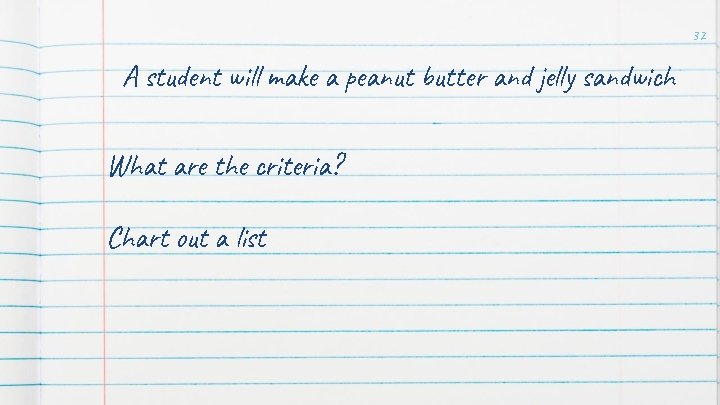 32
A student will make a peanut butter and jelly sandwich
What are the criteria?
Chart out a list